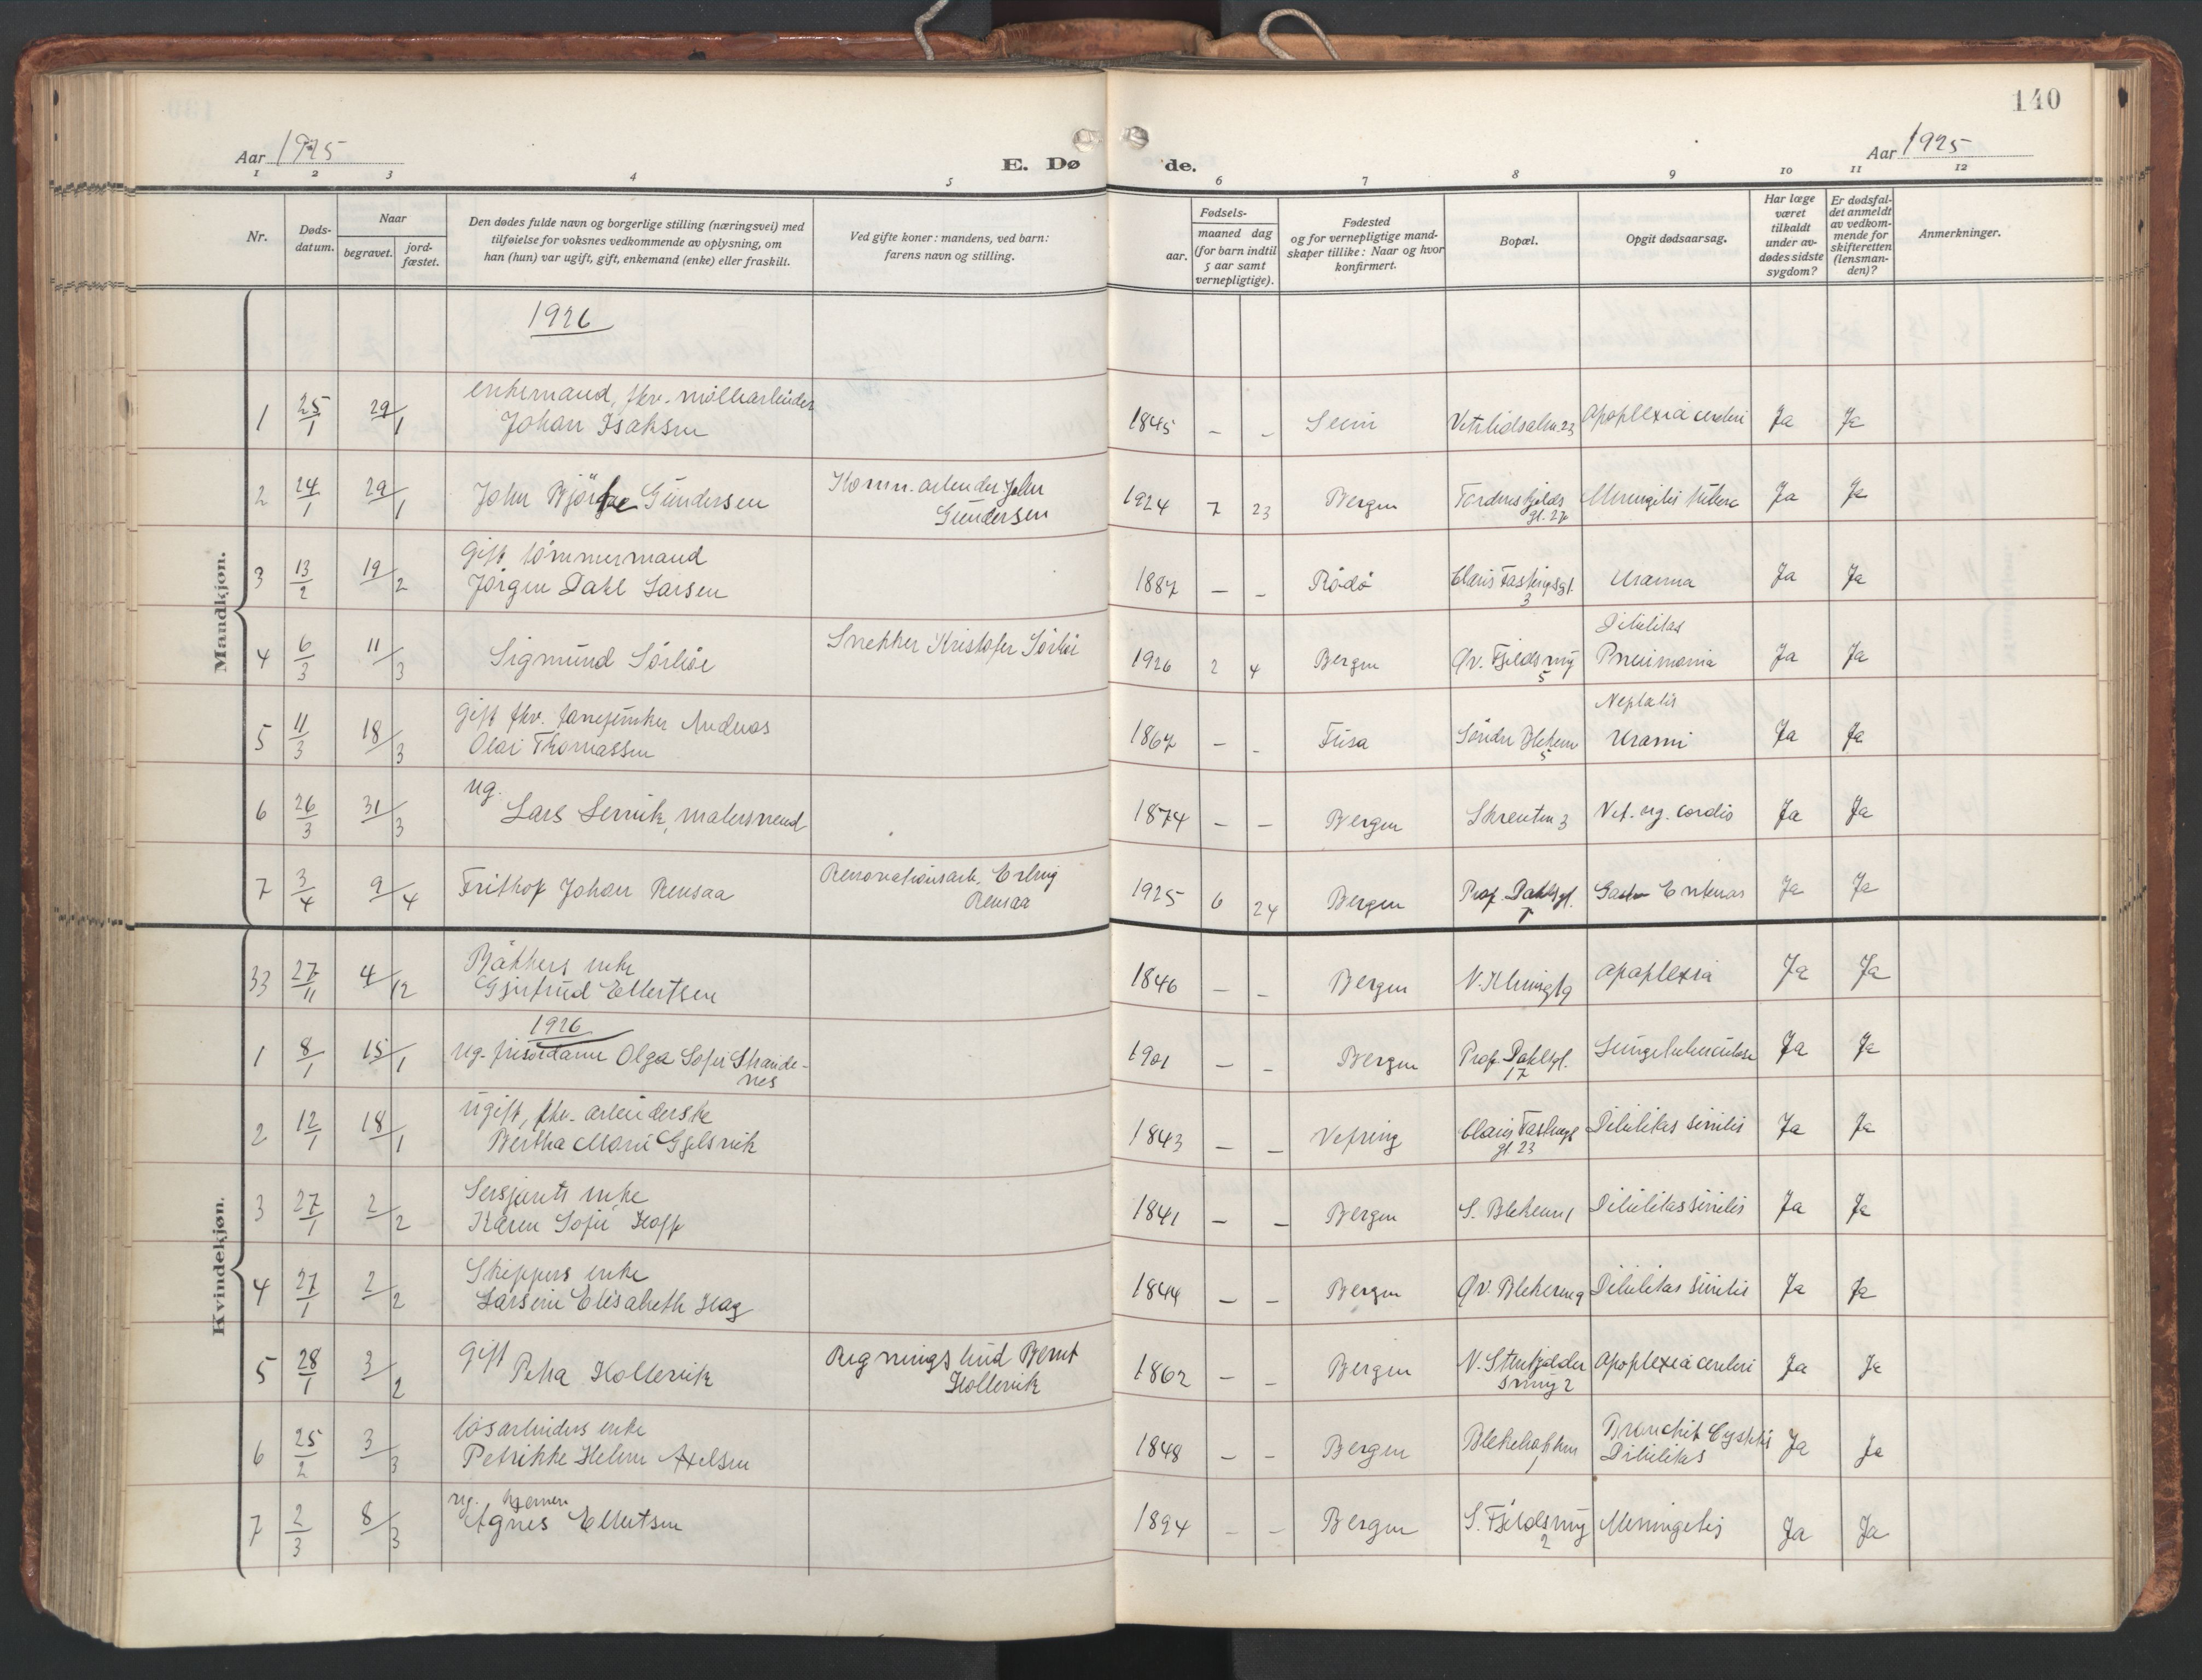 140
Aar 1925
E. Dø
de.
Aar 1925
1 2 3 4 5 6 7 8 9 10 11 12
Nr.
Døds-
datum.
Naar
begravet.
jord-
fæstet.
Den dødes fulde navn og borgerlige stilling (næringsvei) med
tilføielse for voksnes vedkommende av oplysning, om
han (hun) var ugift, gift, enkemand (enke) eller fraskilt.
Ved gifte koner: mandens, ved barn:
farens navn og stilling.
Fødsels-
aar.
maaned dag
(for barn indtil
5 aar samt
vernepligtige).
Fødested
og for vernepligtige mand-
skaper tillike: Naar og hvor
konfirmert.
Bopæl.
Opgit dødsaarsag.
Har læge
været
tilkaldt
under av-
dødes sidste
sygdom?
Er dødsfal-
det anmeldt
av vedkom-
mende for
skifteretten
(lensman-
den)?
Anmerkninger.
Mandkjøn.
1926
enkemand, fhv. møllearbeider
1 25/1 29/1 Johan Isaksen 1845 – – Seim Vetrlidsalm. 23 Apoplexia cerebri Ja Ja
2 24/1 29/1 John Bjørge Gundersen Komm. arbeider John
Gundersen 1924 7 23 Bergen Tordenskjolds
gt. 27 Meningitis tuberc Ja Ja
Gift tømmermand
3 13/2 19/2 Jørgen Dahl Larsen 1887 – – Rødø Claus Fastingsgt.
3 Uræmia Ja Ja
4 6/3 11/3 Sigmund Sørbøe Snekker Kristofer Sørbøe 1926 2 4 Bergen Øv. Fjeldsmug
5 Debilitas
Pneumonia Ja Ja
Gift fhv. Andreas
5 11/3 18/3 Olai Thomassen 1867 – – Fusa Søndre Blekevei
5 Nephritis
Urami Ja Ja
ug.
6 26/3 31/3 Lars Lervik, malersvend 1874 – – Bergen Skreuten 3 Vit. org. cordis Ja Ja
7 3/4 9/4 Frithof Johan Rensaa Renovationsarb. Erling
Rensaa 1925 6 24 Bergen Prof. Dahlsgt. Gastro Enteritis Ja Ja
Kvindekjøn.
Bøkkers enke
33 27/11 4/12 Gjertrud Ellertsen 1846 – – Bergen Apoplexia Ja Ja
1926
1 8/1 15/1 ug. frisørdame Olga Sofie Strande-
nes 1901 – – Bergen Prof. Dahlsgt.
17 Lungetuberculose Ja Ja
Ugift, fhv. arbeiderske
2 12/1 18/1 Bertha Marie Gjelsvik 1843 – – Vefring Claus Fastings
gt. 23 Debilitas sinilis Ja Ja
Sersjants enke
3 27/1 2/2 Karen Sofie Hoff 1841 – – Bergen S. Blekevei 1 Debilitas sinilis Ja Ja
Skippers enke
4 27/1 2/2 Larsine Elisabeth Hag 1844 – – Bergen Øv. Blekevei 9 Debilitas sinilis Ja Ja
5 28/1 3/2 Gift Petra Hollevik Bygningssnid Bernt
Hollevik 1862 – – Bergen N. Stenkjelder
smug 2 Apoplexia cerebri Ja Ja
Løsarbeiders enke
6 25/2 3/3 Petrikke Helene Axelsen 1848 – – Bergen Bronchit Cystitis
Debilitas Ja Ja
ug.
7 2/3 8/3 Agnes Ellertsen 1894 – – Bergen S. Fjeldsmug
2 Meningitis Ja Ja